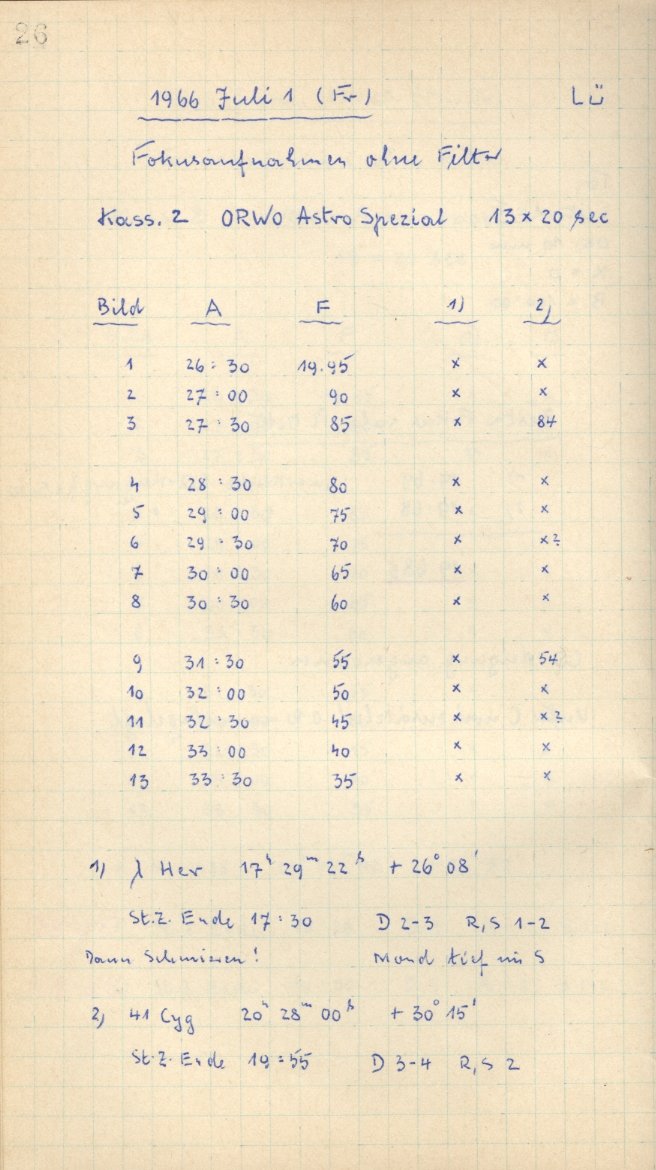 26
1966 Juli 1 (Fr) Lü
Fokusaufnahmen ohne Filter
Kass. 2 ORWO Astro Spezial 13 x 20 sec
Bild A F 1) 2)
1 26:30 19.95 x x
2 27:00 90 x x
3 27:30 85 x 84
4 28:30 80 x x
5 29:00 75 x x
6 29:30 70 x x?
7 30:00 65 x x
8 30:30 60 x x
9 31:30 55 x 54
10 32:00 50 x x
11 32:30 45 x x?
12 33:00 40 x x
13 33:30 35 x x
1) λ Her 17h 29m 22s + 26° 08'
St.Z. Ende 17:30 D 2-3 R,S 1-2
Dann Schmieren! Mond tief im S
2) 41 Cyg 20h 28m 00s + 30° 15'
St.Z. Ende 19:55 D 3-4 R,S 2